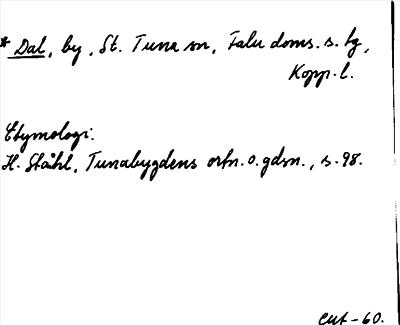 * Dal, by, St. Tuna sn, Falu doms. s. tg,
Kopp. l.
Etymologi:
H. Ståhl, Tunabygdens ortn. o. gdsn., s. 98.